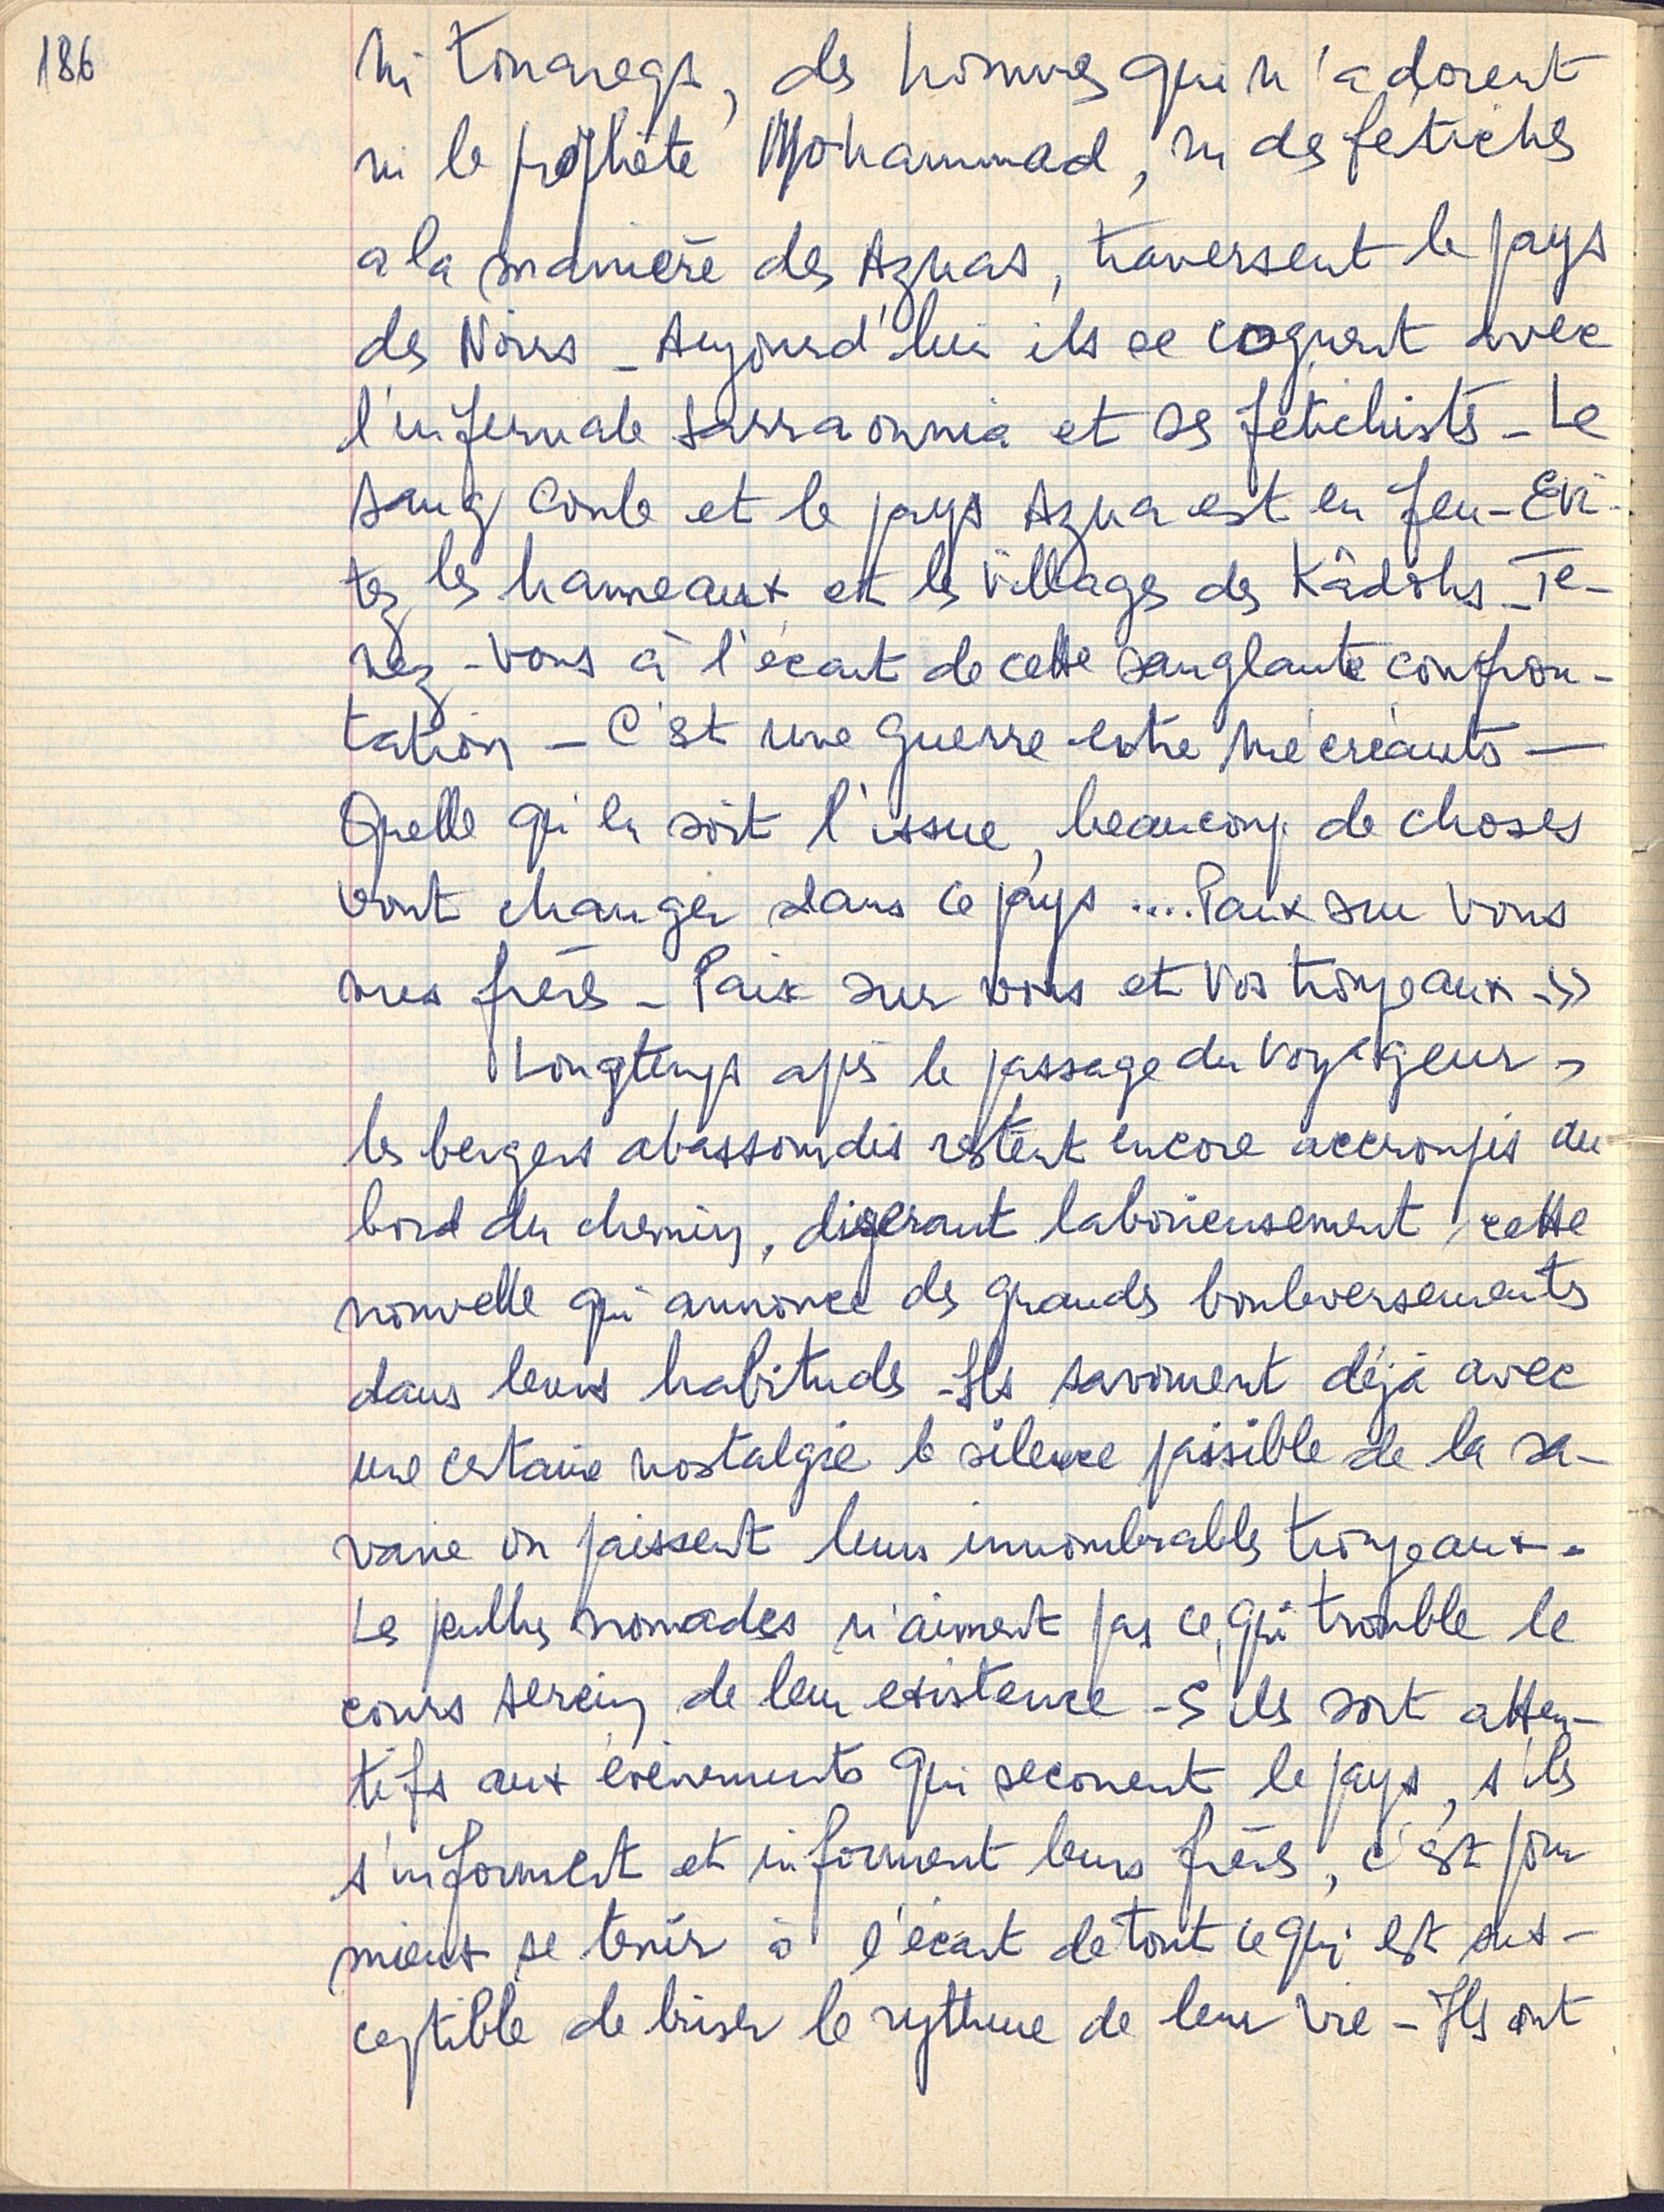 186
ni touaregs, des hommes qui n'adorent
ni le prophète Mohammad, ni des fétiches
a la manière des Aznas, traversent le pays
des Noirs _ Aujourd'hui ils se cognent avec
l'infernale Sarraounnia et ses fétichistes _ Le
sang coule et le pays Azna est en feu _ Evi-
tez les hameaux et les villages des Kâdohs _ Te-
nez-vous à l'écart de cette sanglante confron-
tation _ C'est une guerre entre mécréants —
Quelle qu'en soit l'issue, beaucoup de choses
vont changer dans ce pays .... Paix sur vous
mes frères _ Paix sur vous et vos troupeaux _ »
Longtemps après le passage du voyageur,
les bergers abassourdis restent encore accroupis au
bord du chemin, digérant laborieusement cette
nouvelle qui annonce des grands bouleversements
dans leurs habitudes _ Ils savourent déjà avec
une certaine nostalgie le silence paisible de la sa-
vane où paissent leurs innombrables troupeaux _
Les peulhs nomades n'aiment pas ce qui trouble le
cours serein de leur existence _ S'ils sont atten-
tifs aux évènements qui secouent le pays, s'ils
s'informent et informent leurs frères, c'est pour
mieux se tenir à l'écart de tout ce qui est sus-
ceptible de briser le rythme de leur vie _ Ils ont